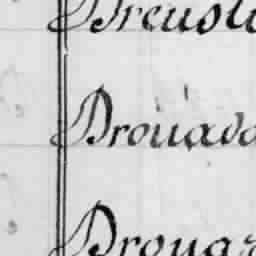 Dreusli
Drouado
Drouar